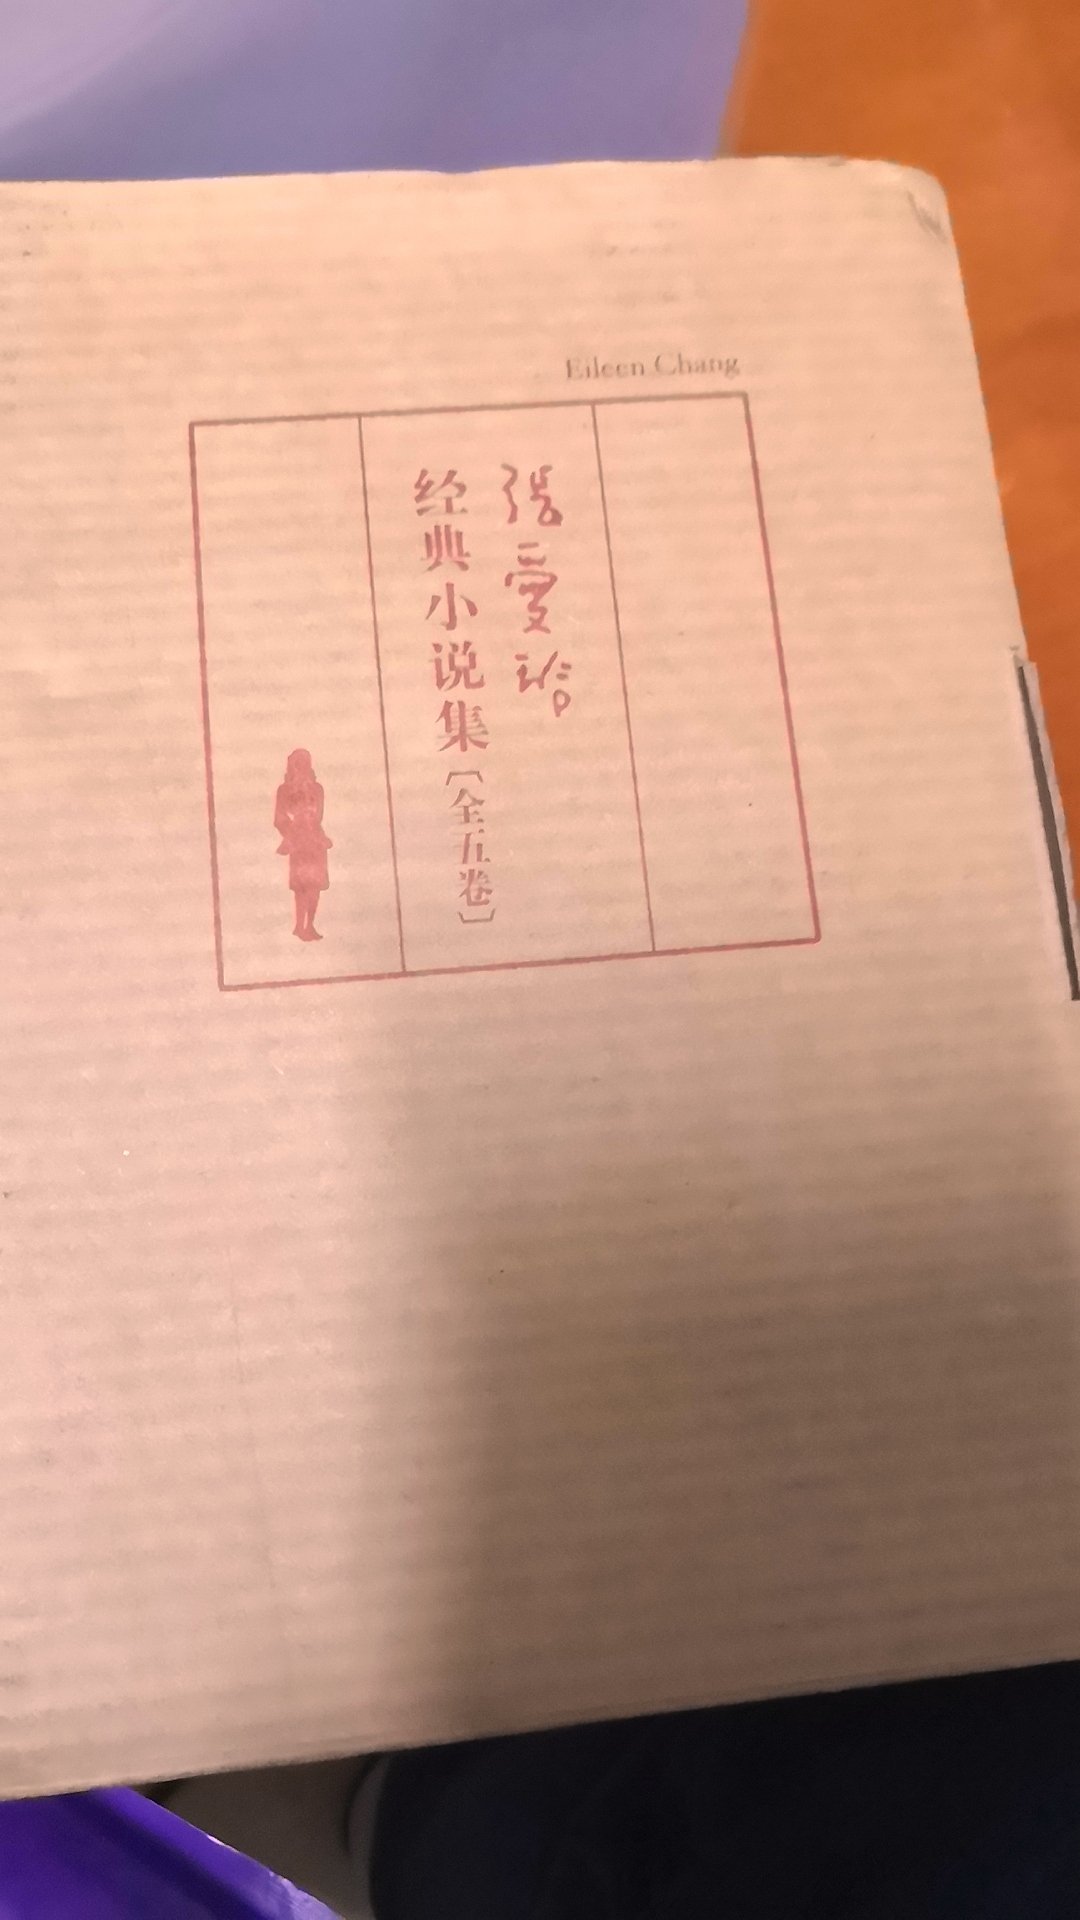 Eileen Chang
張愛玲
经典小说集
〔全五卷〕